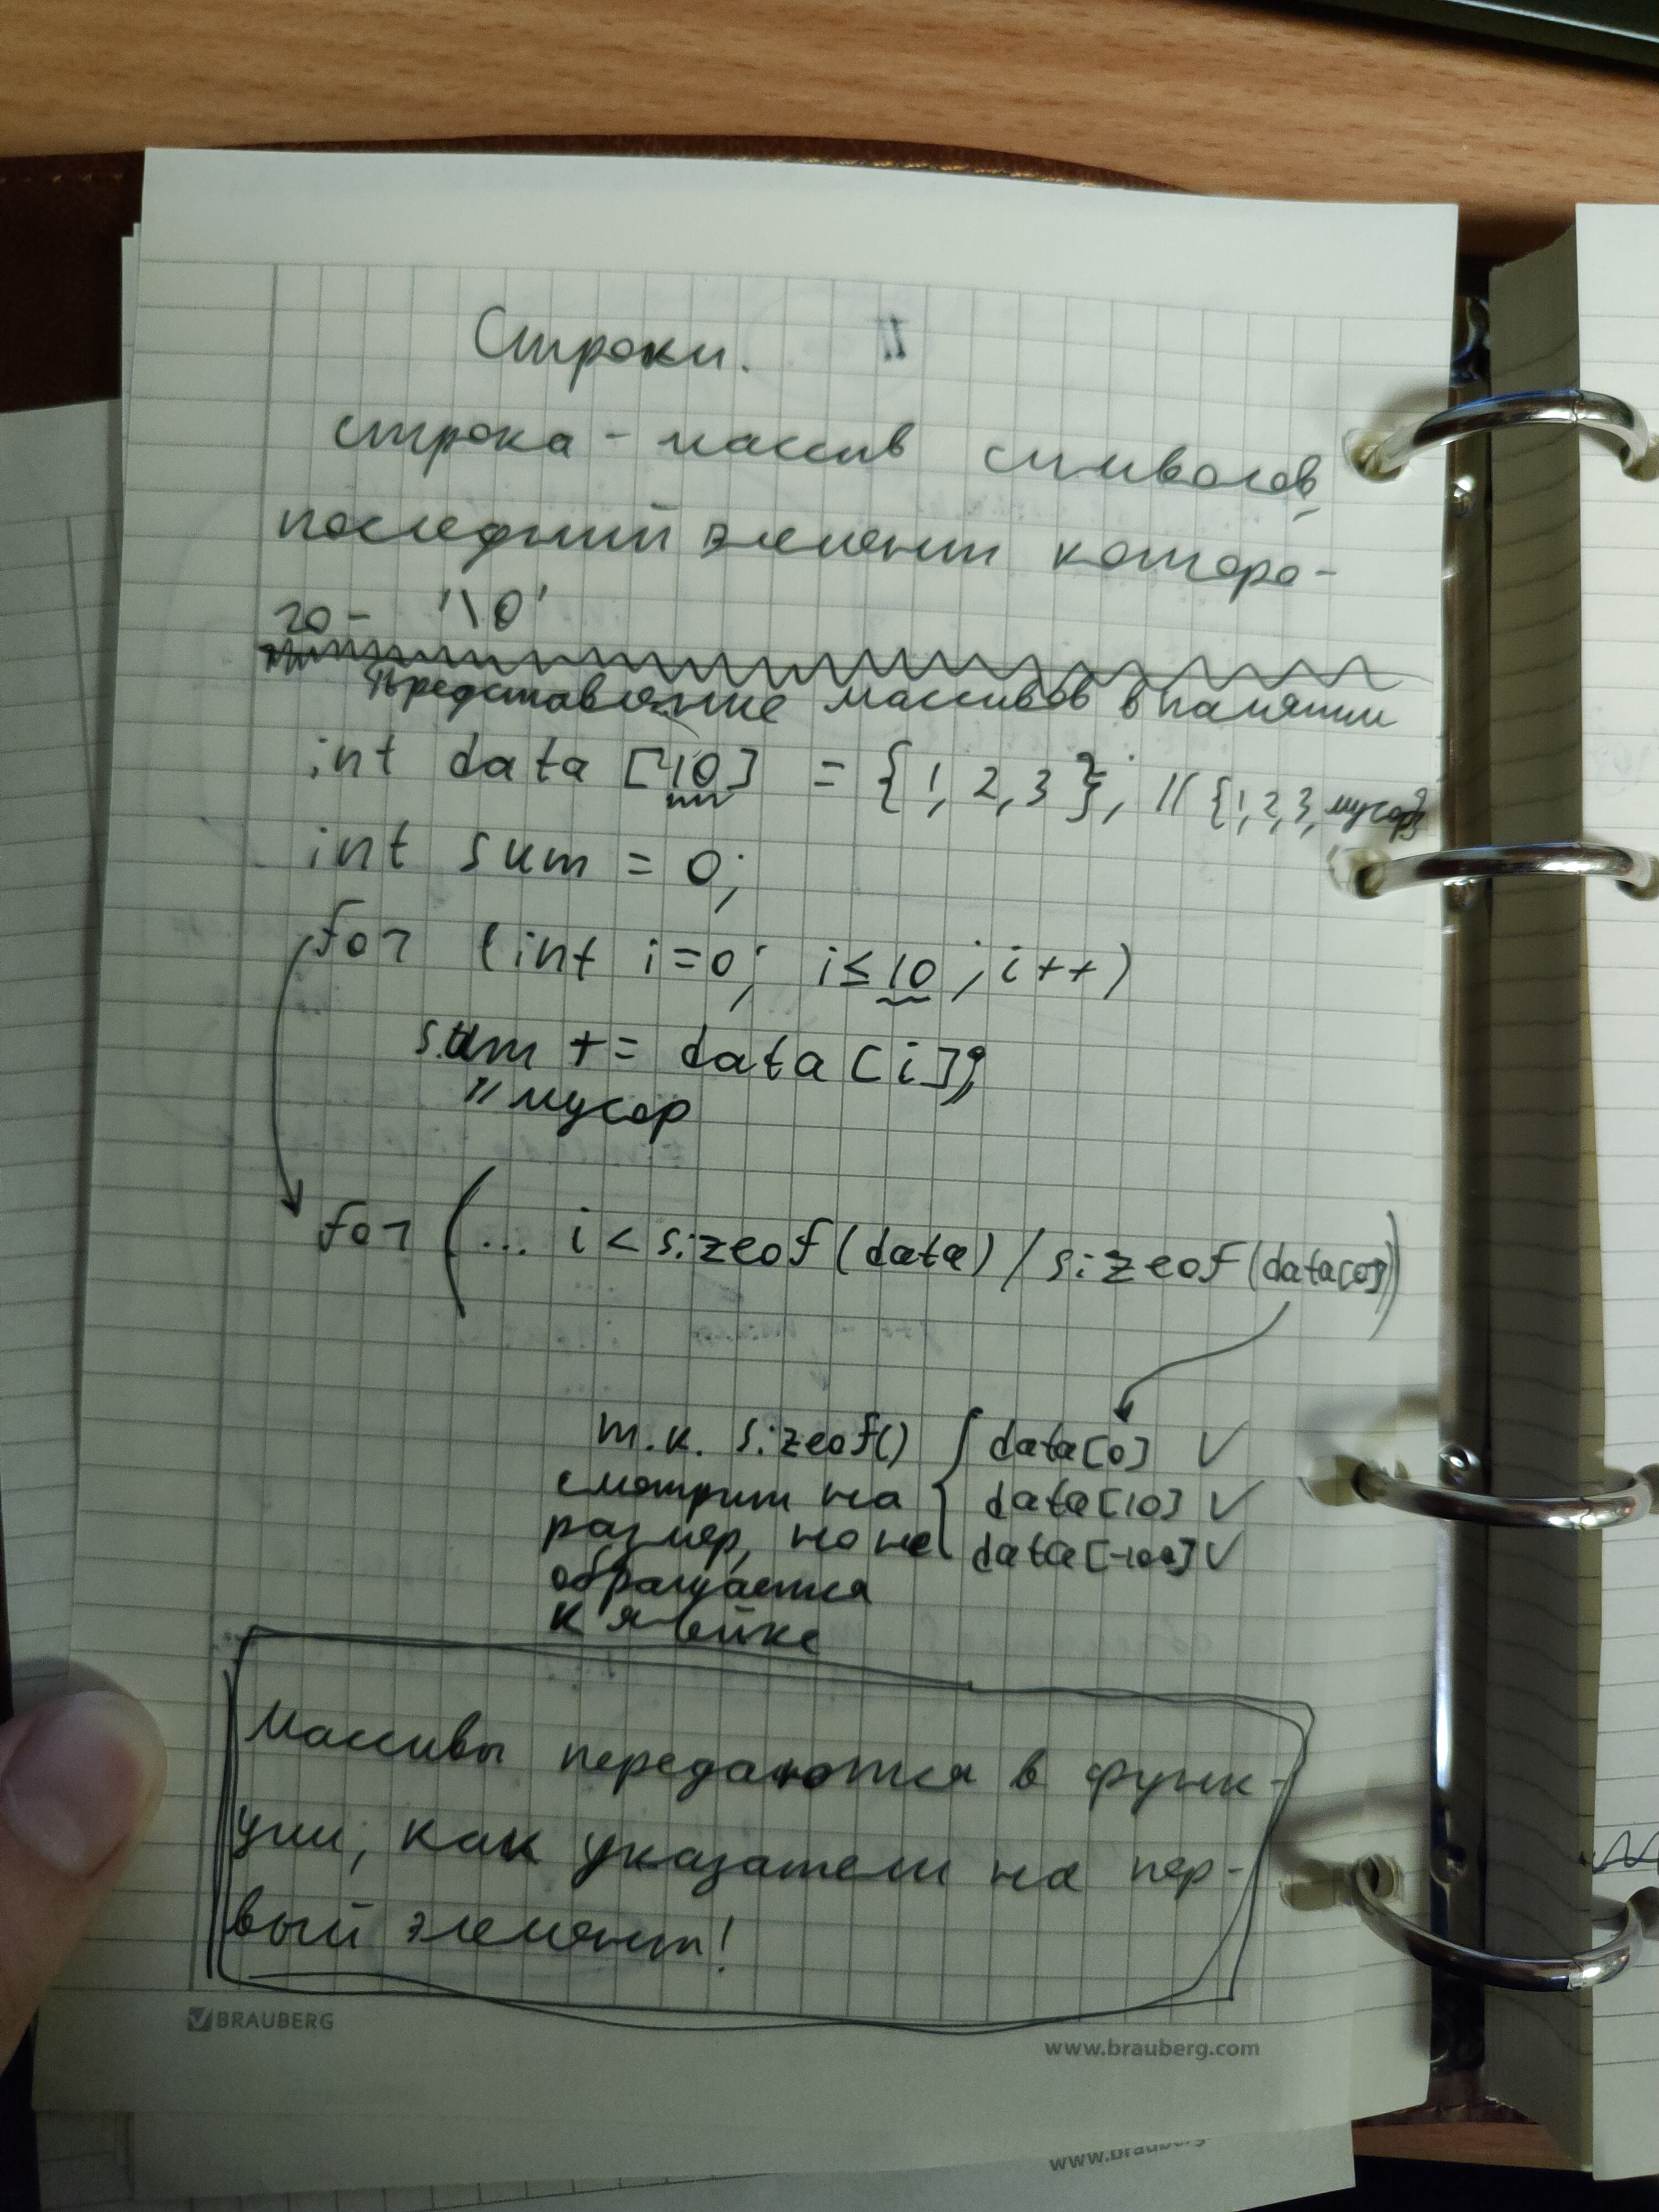 Строки.
строка - массив символов,
последний элемент которо-
го - '\0'
Представление массивов в памяти
int data [10] = {1, 2, 3}; // {1, 2, 3, мусор}
int sum = 0;
for (int i=0; i≤10; i++)
sum += data[i];
// мусор
for (... i < sizeof(data) / sizeof(data[0]))
т.к. sizeof() { data[0] ✓
смотрит на data[10] ✓
размер, но не data[-100] ✓
обращается
к ячейке
Массивы передаются в функ-
ции, как указатели на пер-
вый элемент!
BRAUBERG
www.brauberg.com
www.brauberg